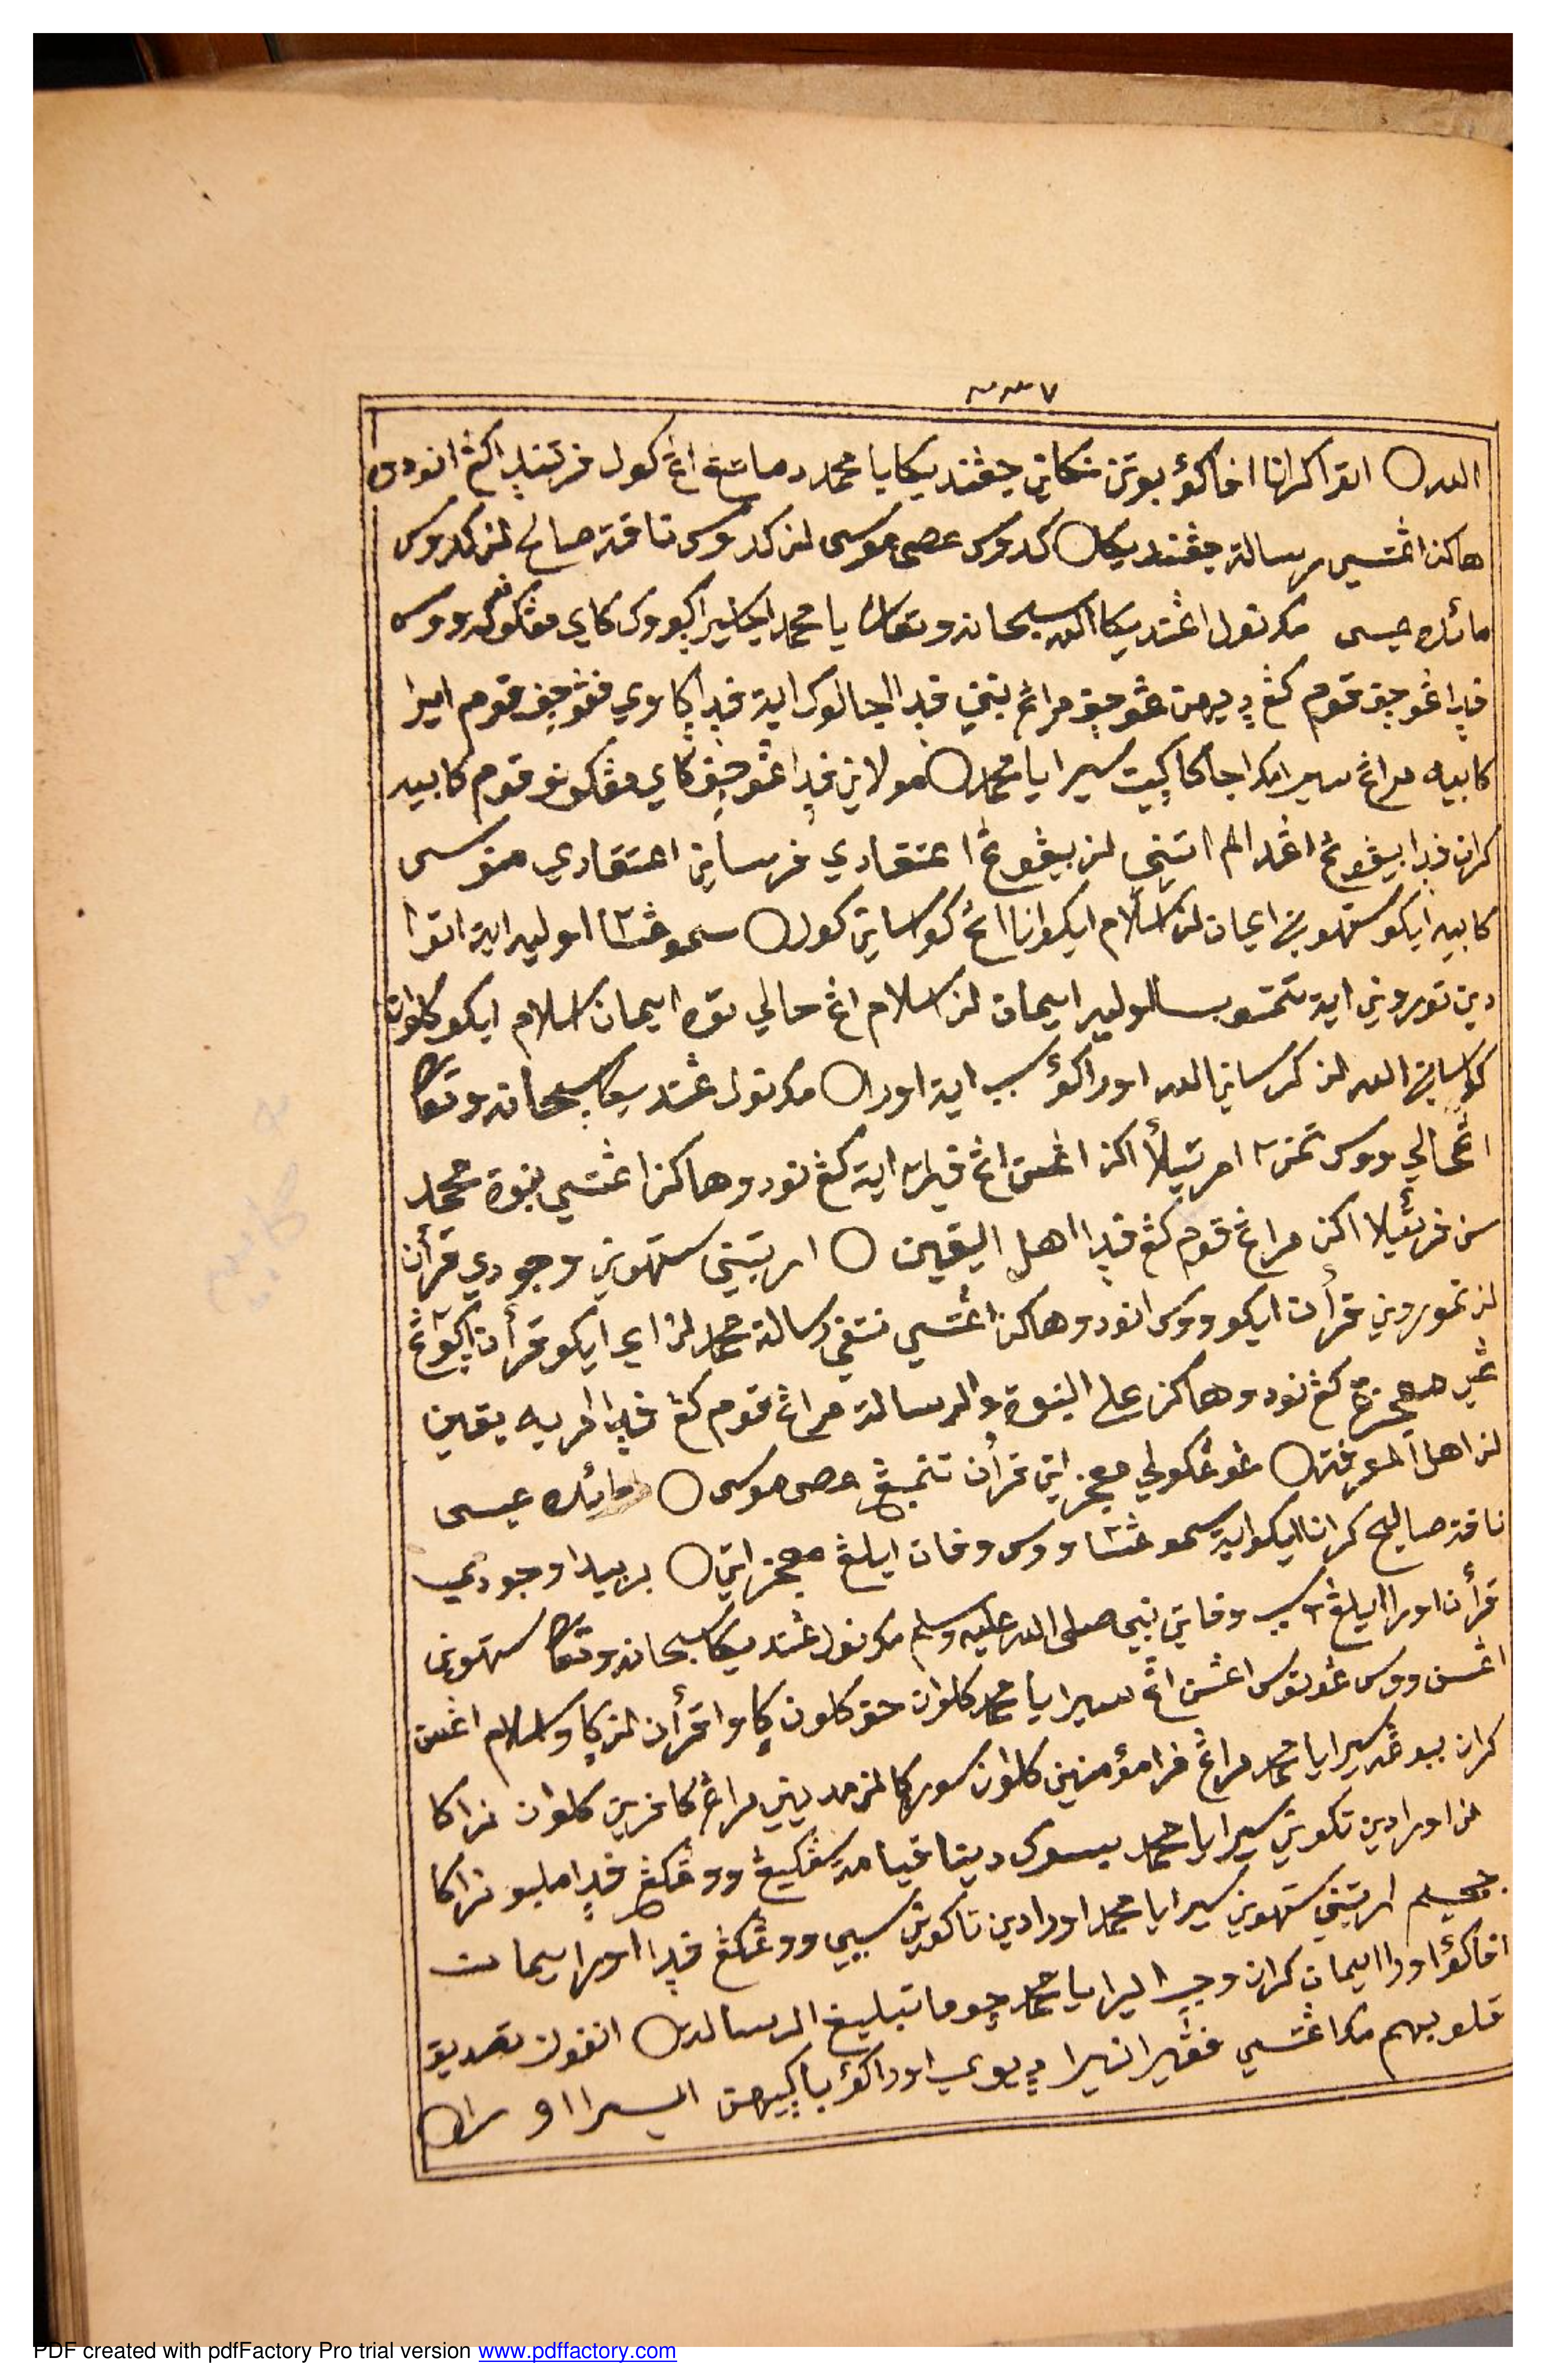 ٢٣٧
الله ○ اتوا كرانا افاكؤ بوتن نكاني جڠندیكا یا محمد دماتڠ اڠ كول فرتندا كڠ انودوه
هاكن اڠتسي رسالة جڠندیكا ○ كدوس عصى موسى لن كدوس ناقة صالح لن كدوس
مائدة عيسى مك نول اڠندیكا الله سبحانه وتعالى یا محمد
فدا ڠوجف قوم كڠ ديهن ڠوجف مراڠ نبيني فدا انجالوك اية فدا كاوي فڠوجف قوم ايرا
كابيه مراڠ سيرا مك اجا كاكيت سيرا یا محمد ○ مولاني فدا ڠوجف كاي مڠكونو قوم كابيه
كران فدا بيڠوڠ اڠدالم اتيني لن بيڠوڠ اعتقادي فرساني اعتقادي منوسى
كابيه ايكو ستهوني ايمان لن اسلام ايكو انا اڠ كواساني كول ○ سموڠسا اوليه اية اتوا
دين توروني اية تتمتو بسا اوليه ايمان لن اسلام اڠ حالي توه ايمان اسلام ايكو كلوان
كواساني الله لن كرساني الله اورا كؤ سبب اية اورا ○ مك نول ڠندیكا سبحانه وتعالى
اڠحالي ووس تمن٢ امرتيلأاكن اڠسن اڠ فيرا٢ اية كڠ نودوهاكن اڠتسي نبوة محمد
سن فرتيلااكن مراڠ قوم كڠ فدا اهل اليقين ○ ارتيني ستهوني وجودي قرأن
لن تموروني قرأن ايكو ووس انودوهاكن اڠتسي نتفي رسالة محمد لن اي ايكو قرأن
معجزة كڠ نودوهاكن على النبوة والرسالة مراڠ قوم كڠ فدا امريه يقين
لن اهل المعرفة ○ ڠوڠكولي معجزاتي قرأن تنمبڠ عصى موسى ○ مائدة عيسى
ناقة صاليح كرانا ايكو اية سموڠسا ووس وفات ايلڠ معجزاتي ○ بربيدا وجودي
قرأن اورا ايلڠ٢ سبب وفاتي نبي صلى الله عليه وسلم مك نول ڠندیكا سبحانه وتعالى ستهوني
اڠسن ووس ڠوتوس اڠسن اڠ سيرا یا محمد كلوان حق كلون كاوا قرأن لن كاوا اسلام اڠسن
كران ببوڠه سيرا یا محمد مراڠ فرا مؤمنين كلوان سوركا لن مديني مراڠ كافرين كلوان نراكا
لن اورا دين تكوني سيرا یا محمد بيسوك دينا قيامة سڠكيڠ ووڠكڠ فدا ملبو نراكا
جحيم ارتيني ستهوني سيرا یا محمد اورا دين تاكوني سببي ووڠكڠ فدا اورا ايمان
افاكؤ اورا ايمان كران وجب ايرا یا محمد چوما تبليغ الرسالة ○ انفون تصديق
قلوبهم مك اڠتسي فڠيران ايرا ديوي اورا كؤ باكيهن ايرا اورا ○
PDF created with pdfFactory Pro trial version www.pdffactory.com